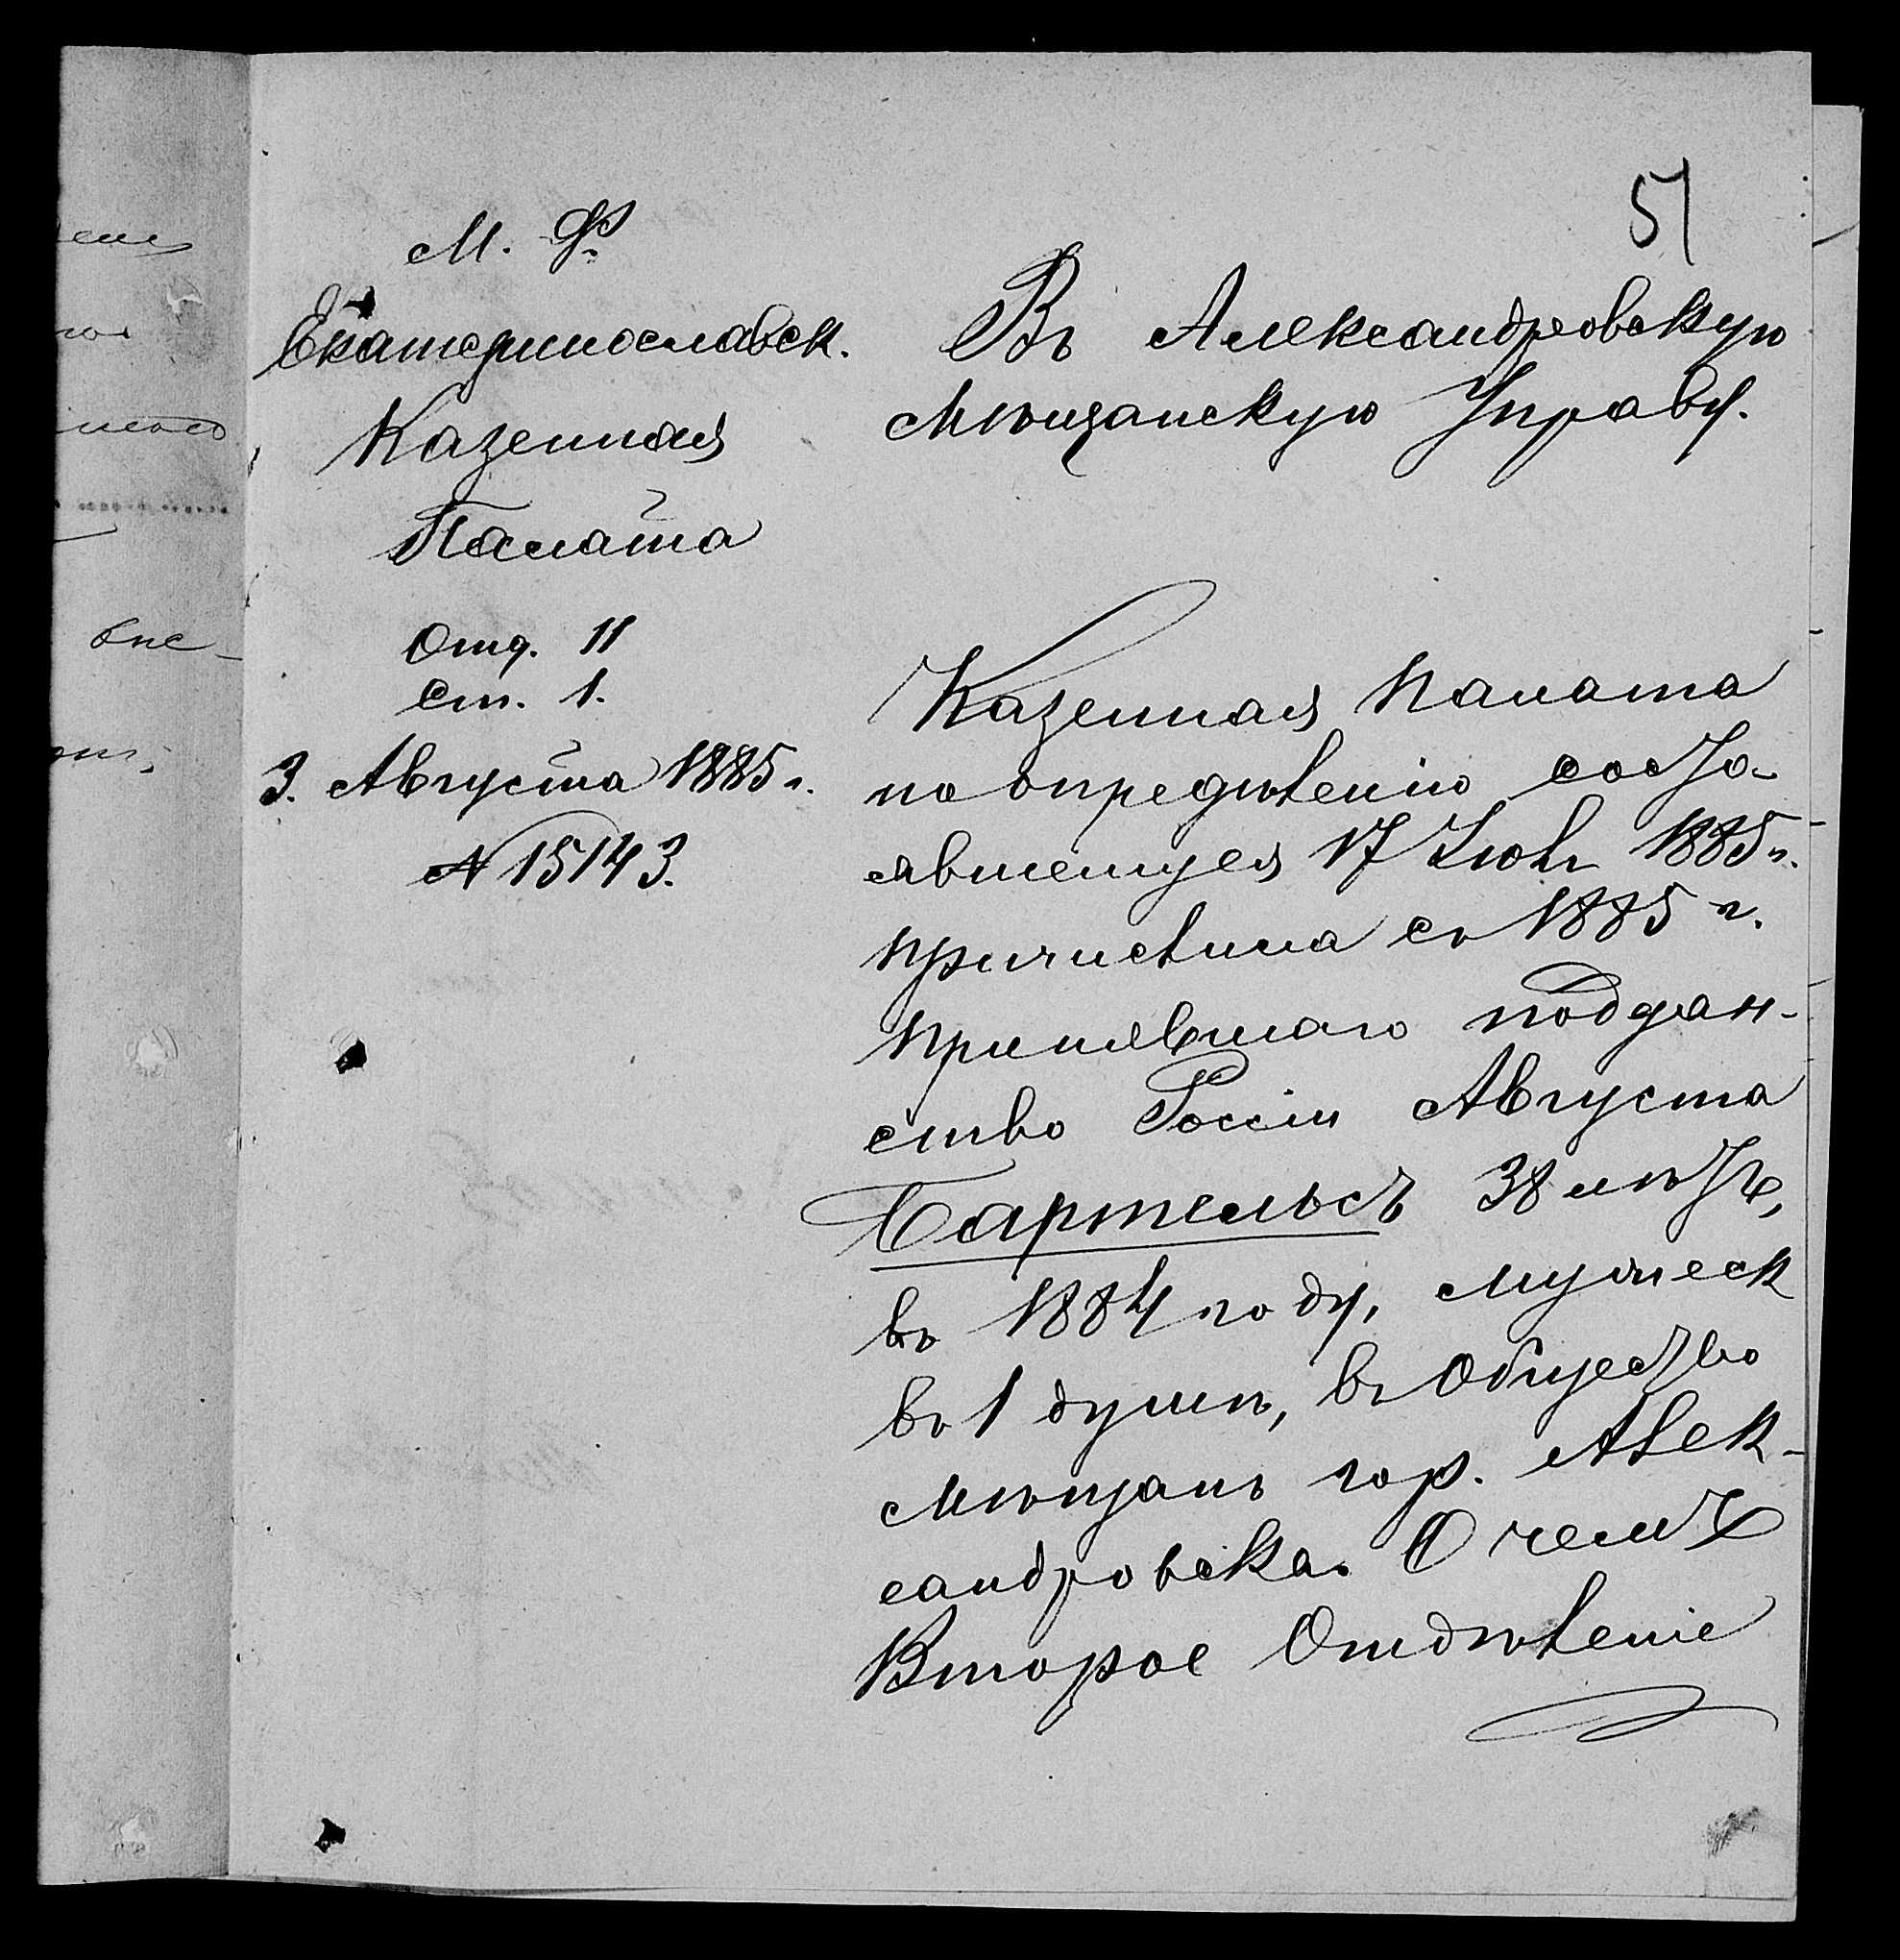 51
М. Ф.
Екатеринославск.
Казенная
Палата
Отд. II
Ст. 1.
3. Августа 1885 г.
№ 15143.
Въ Александровскую
Мѣщанскую Управу.
Казенная Палата
по опредѣленію состо-
явшемуся 17 Іюля 1885 г.
причислила съ 1885 г.
принявшаго поддан-
ство Россіи Августа
Бартельсъ 38 лѣтъ,
въ 1884 году, мужеск
въ 1 душѣ, въ Общество
Мѣщанъ гор. Алек-
сандровска. О чемъ
Второе Отдѣленіе
вне-